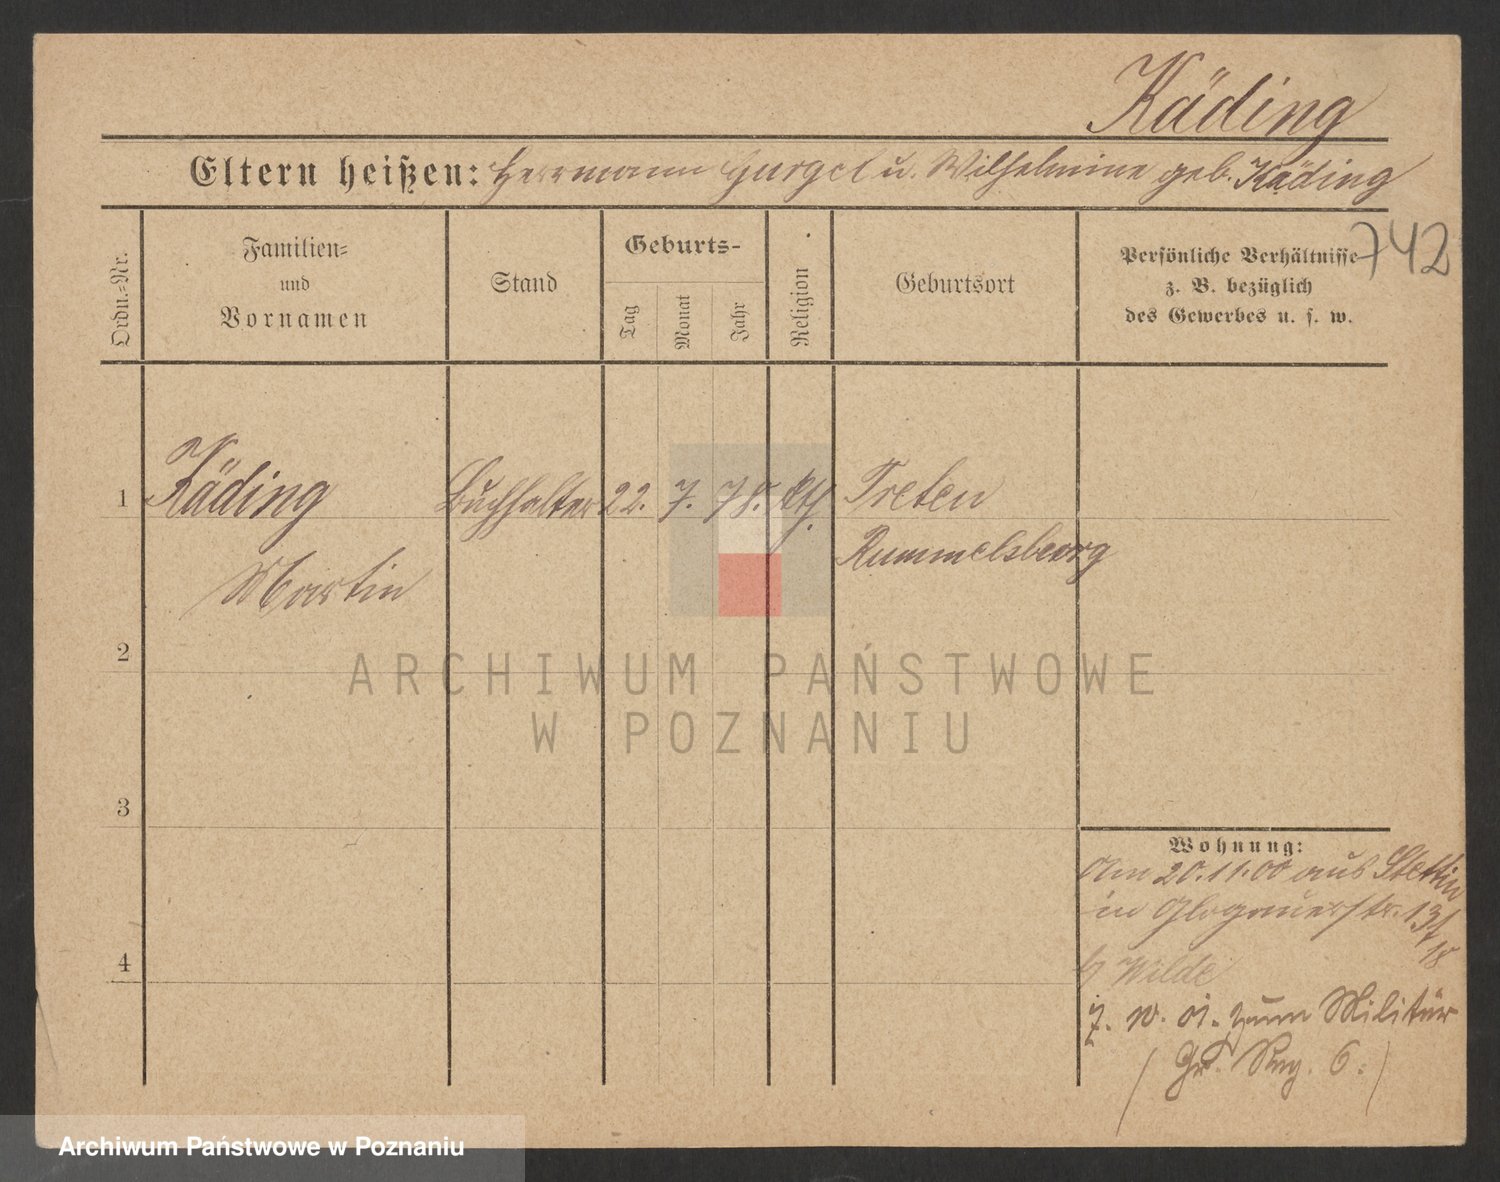 Käding
Eltern heißen: Herrmann Gurgel u. Wilhelmine geb. Käding
742
Ordn.-Nr.
Familien-
und
Vornamen
Stand
Geburts-
Tag
Monat
Jahr
Religion
Geburtsort
Persönliche Verhältnisse
z. B. bezüglich
des Gewerbes u. s. w.
1 Käding Buchhalter 22. 7. 78. kth. Treten
Rummelsburg
Martin
2
3
4
Wohnung:
Am 20.11.00 aus Stettin
in Glogauerstr.
b/ Wilde
zum Militär
(Gr. Reg. 6.)
ARCHIWUM PAŃSTWOWE
W POZNANIU
Archiwum Państwowe w Poznaniu